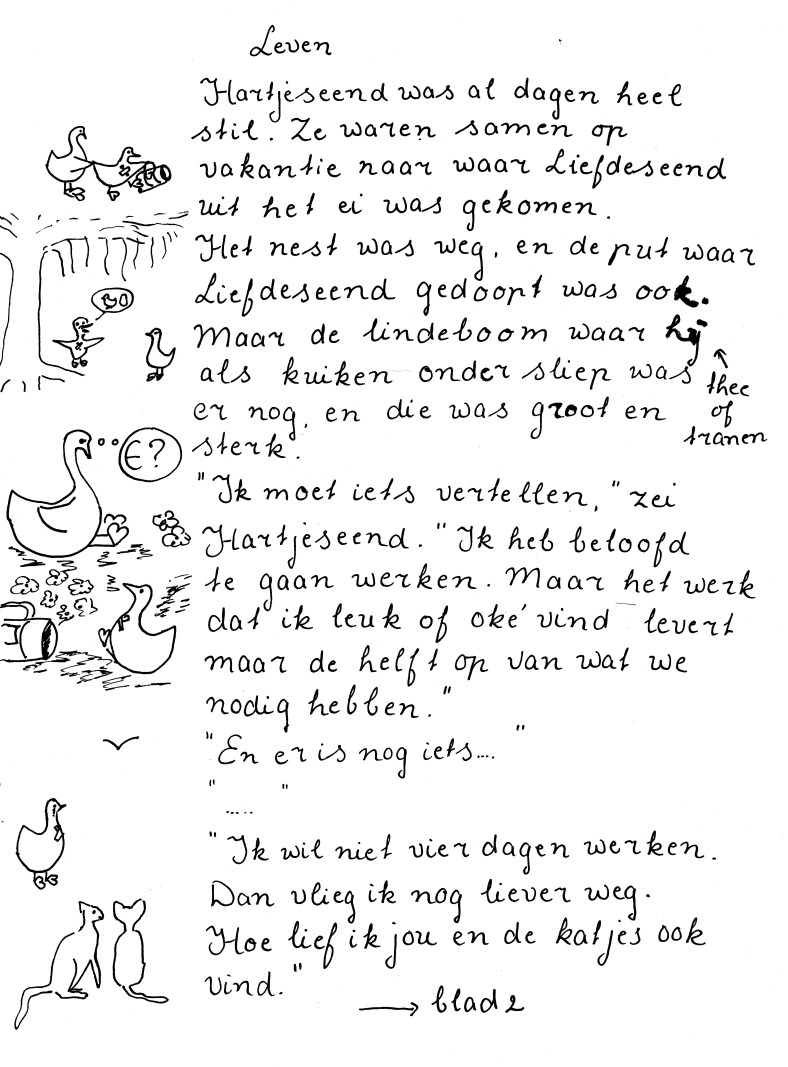 Leven
Hartjeseend was al dagen heel
stil. Ze waren samen op
vakantie naar waar Liefdeseend
uit het ei was gekomen.
Het nest was weg, en de put waar
Liefdeseend gedoopt was ook.
Maar de lindeboom waar hij
als kuiken onder sliep was
er nog, en die was groot en
sterk.
thee
of
tranen
€?
"Ik moet iets vertellen," zei
Hartjeseend. "Ik heb beloofd
te gaan werken. Maar het werk
dat ik leuk of oké vind levert
maar de helft op van wat we
nodig hebben."
"En er is nog iets...."
"....."
"Ik wil niet vier dagen werken.
Dan vlieg ik nog liever weg.
Hoe lief ik jou en de katjes ook
vind."
→ blad 2